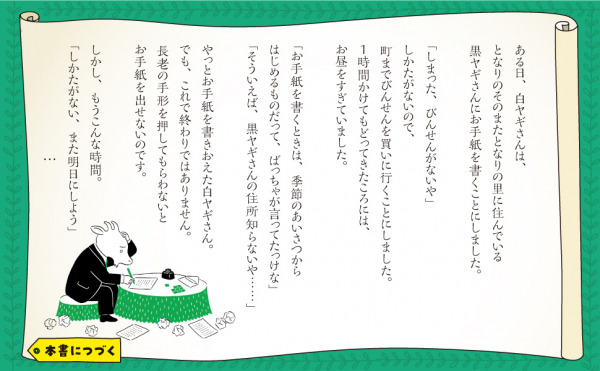 ある日、白ヤギさんは、
となりのそのまたとなりの里に住んでいる
黒ヤギさんにお手紙を書くことにしました。
「しまった、びんせんがないや」
しかたがないので、
町までびんせんを買いに行くことにしました。
1時間かけてもどってきたころには、
お昼をすぎていました。
「お手紙を書くときは、季節のあいさつから
はじめるものだって、ばっちゃが言ってたっけな」
「そういえば、黒ヤギさんの住所知らないや……」
やっとお手紙を書きおえた白ヤギさん。
でも、これで終わりではありません。
長老の手形を押してもらわないと
お手紙を出せないのです。
しかし、もうこんな時間。
「しかたがない、また明日にしよう」
…
本書につづく